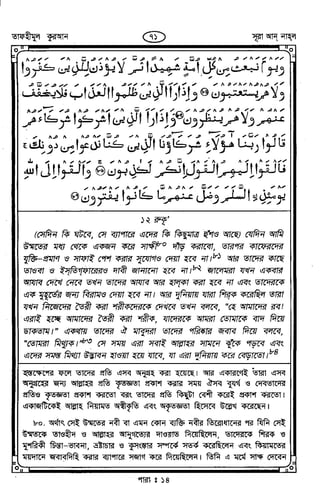 তাফহীমুল কুরআন
৭১
সূরা আন্ নাহল
وَيَوْمَ نَبْعَثُ مِنْ كُلِّ أُمَّةٍ شَهِيدًا ثُمَّ لَا يُؤْذَنُ لِلَّذِينَ كَفَرُوا
وَلَا هُمْ يُسْتَعْتَبُونَ ۝ وَإِذَا رَأَ الَّذِينَ ظَلَمُوا الْعَذَابَ فَلَا يُخَفَّفُ
عَنْهُمْ وَلَا هُمْ يُنْظَرُونَ ۝ وَإِذَا رَأَ الَّذِينَ أَشْرَكُوا شُرَكَاءَهُمْ
قَالُوا رَبَّنَا هَٰؤُلَاءِ شُرَكَاؤُنَا الَّذِينَ كُنَّا نَدْعُوا مِنْ دُونِكَ ۚ
فَأَلْقَوْا إِلَيْهِمُ الْقَوْلَ إِنَّكُمْ لَكَاذِبُونَ ۝ وَأَلْقَوْا إِلَى اللَّهِ
يَوْمَئِذٍ السَّلَمَ وَضَلَّ عَنْهُمْ مَا كَانُوا يَفْتَرُونَ ۝
১২ রুকু'
(সেদিন কি ঘটবে, সে ব্যাপারে এদের কি কিছুমাত্র হুঁশও আছে) যেদিন আমি
উম্মতের মধ্য থেকে একজন করে সাক্ষী৮০ দাঁড় করাবো, তারপর কাফেরদের
যুক্তি-প্রমাণ ও সাফাই পেশ করার সুযোগও দেয়া হবে না।৮১ আর তাদের কাছে
তাওবা ও ইসতিগফারেরও দাবী জানানো হবে না।৮২ জালেমরা যখন একবার
আযাব দেখে নেবে তখন তাদের আযাব আর হালকা করা হবে না এবং তাদেরকে
এক মুহূর্তের জন্য বিরামও দেয়া হবে না। আর দুনিয়ায় যারা শিরক করেছিল তারা
যখন নিজেদের তৈরী করা শরীকদেরকে দেখবে তখন বলবে, "হে আমাদের রব!
এরাই হচ্ছে আমাদের তৈরী করা শরীক, যাদেরকে আমরা তোমাকে বাদ দিয়ে
ডাকতাম।" একথায় তাদের ঐ মাবুদরা তাদের পরিষ্কার জবাব দিয়ে বলবে,
"তোমরা মিথ্যুক।"৮৩ সে সময় এরা সবাই আল্লাহর সামনে ঝুঁকে পড়বে এবং
এদের সমস্ত মিথ্যা উদ্ভাবন হাওয়া হয়ে যাবে, যা এরা দুনিয়ায় করে বেড়াতো।৮৪
অনুগ্রহের জন্য আল্লাহর প্রতি কৃতজ্ঞতা প্রকাশ করার সময়
প্রতিও কৃতজ্ঞতা প্রকাশ করতো বরং তাদের প্রতি কিছুটা বেশী করেই প্রকাশ করতো।
একাজটিকেই আল্লাহ নিয়ামত অস্বীকৃতি এবং অকৃতজ্ঞতা হিসেবে উল্লেখ করেছেন।
৮০. অর্থাৎ সেই উম্মতের নবী বা এমন কোন ব্যক্তি নবীর তিরোধানের পর যিনি সেই
উম্মতকে তাওহীদ ও আল্লাহর আনুগত্যের দাওয়াত দিয়েছিলেন, তাদেরকে শিরক ও
মুশরিকী চিন্তা-ভাবনা, ভ্রষ্টাচার ও কুসংস্কার সম্পর্কে সতর্ক করেছিলেন এবং কিয়ামতের
ময়দানে জবাবদিহি করার ব্যাপারে সজাগ করে দিয়েছিলেন। তিনি এ মর্মে সাক্ষ দেবেন
পারা : ১৪